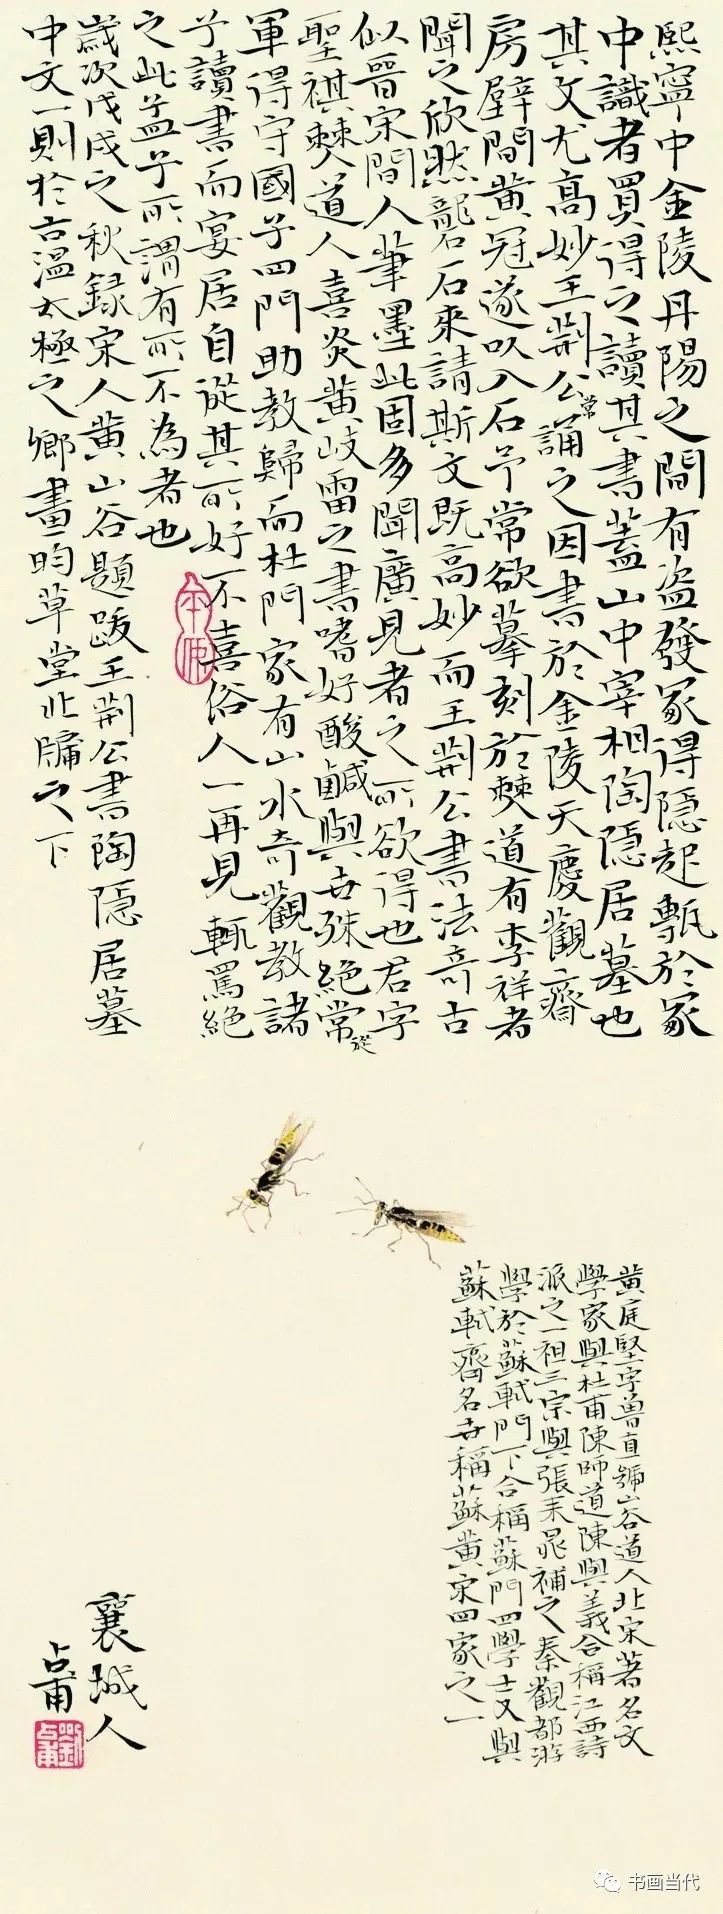 熙寧中金陵丹陽之間有盜發冢得隱起甎於冢
中識者買得之讀其書蓋山中宰相陶隱居墓也
其文尤高妙王荊公常誦之因書於金陵天慶觀齋
房壁間黃冠遂以入石予常欲摹刻於僰道有李祥者
聞之欣然礱石來請斯文既高妙而王荊公書法奇古
似晉宋間人筆墨此固多聞廣見者之所欲得也君字
聖祺僰道人喜炎黃岐雷之書嗜好酸鹹與世殊絕常從
軍得守國子四門助教歸而杜門家有山水奇觀教諸
子讀書而宴居自從其所好不喜俗人一再見輒罵絕
之此孟子所謂有所不為者也
歲次戊戌之秋録宋人黃山谷題跋王荊公書陶隱居墓
中文一則於古溫太極之鄉畫昀草堂北牖之下
黃庭堅字魯直號山谷道人北宋著名文
學家與杜甫陳師道陳與義合稱江西詩
派之一祖三宗與張耒晁補之秦觀都游
學於蘇軾門下合稱蘇門四學士又與
蘇軾齊名世稱蘇黃宋四家之一
襄城人
占甫
劉占甫
书画当代